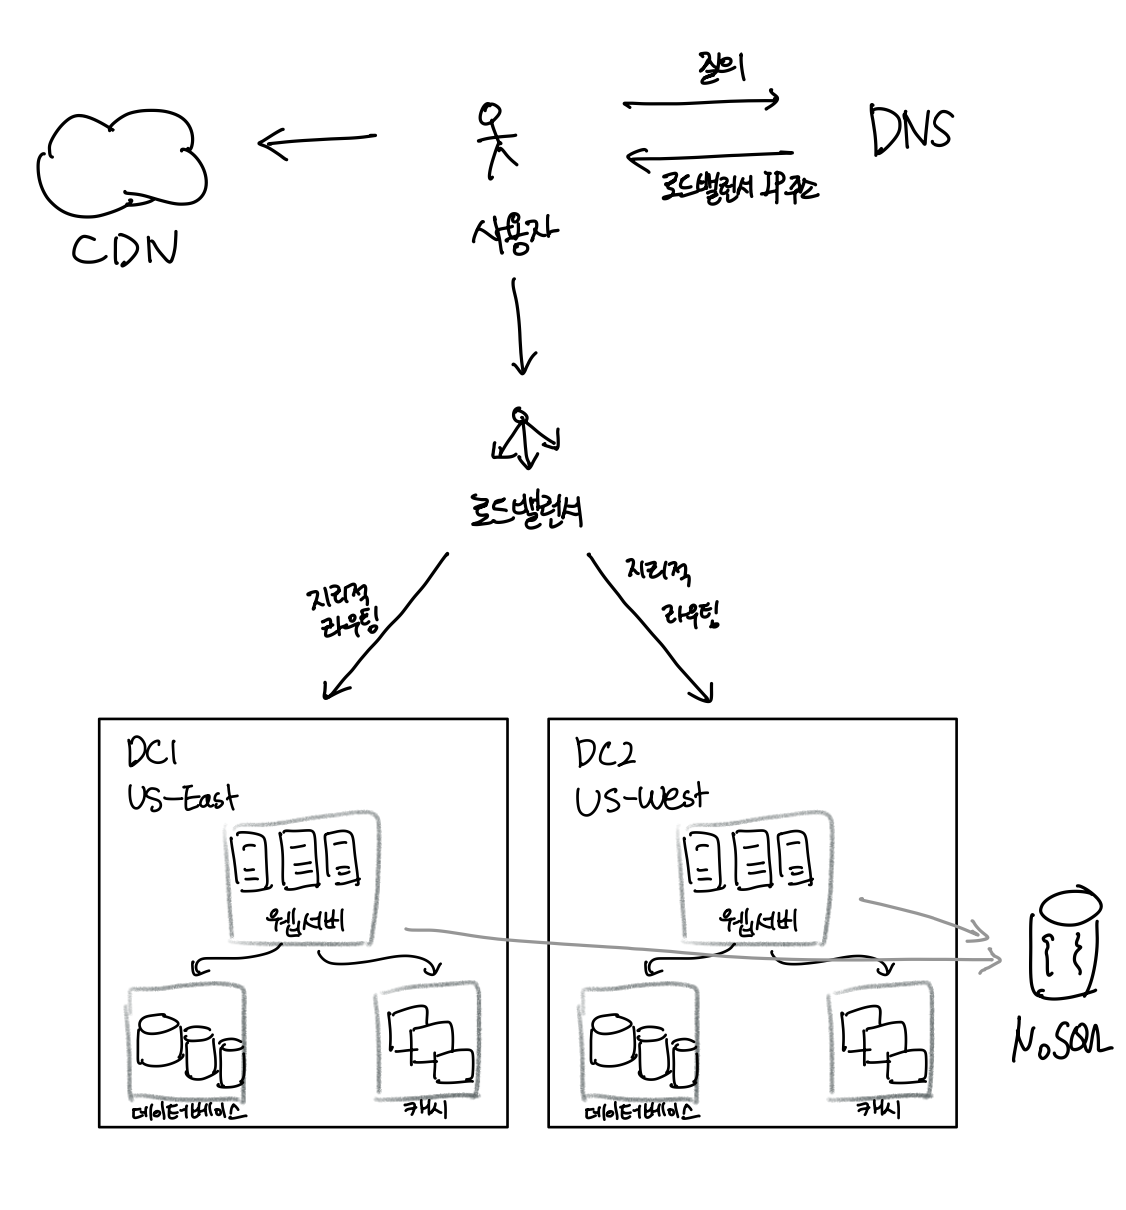 질의
DNS
로드밸런서 IP주소
CDN
사용자
로드밸런서
지리적
라우팅
지리적
라우팅
DC1
US-East
웹서버
데이터베이스
캐시
DC2
US-West
웹서버
데이터베이스
캐시
NoSQL